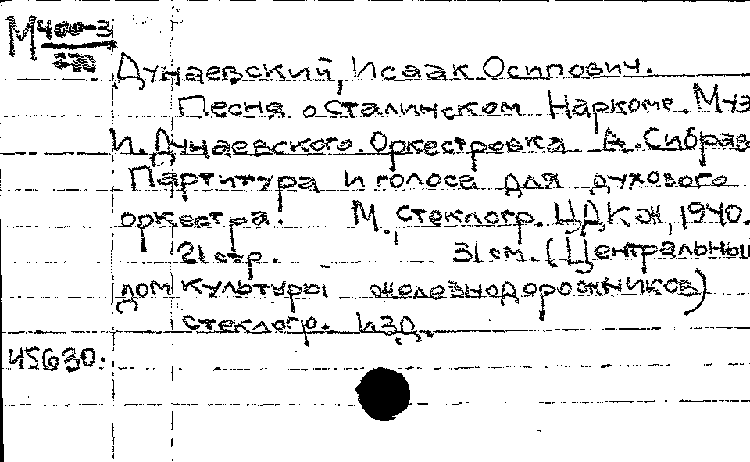 М 400-3
Дунаевский, Исаак Осипович.
Песня о Сталинском Наркоме. Муз
И. Дунаевского. Оркестровка А. Сибрав
Партитура и голоса для духового
оркестра. М., стеклогр. ЦДКж, 1940.
21 стр. 31 см. (Центральный
дом культуры железнодорожников)
стеклогр. изд.
45630.